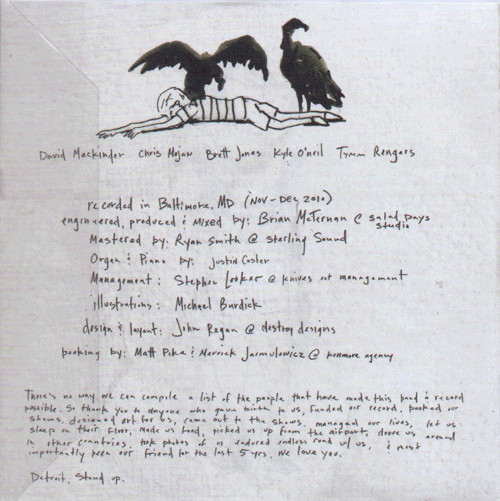 David Mackinder Chris Mojan Brett Jones Kyle O'neil Tymm Rengers
recorded in Baltimore, MD (NOV - DEC 2010)
engineered, produced & mixed by: Brian McTernan @ salad days studio
Mastered by: Ryan Smith @ sterling Sound
Organ & Piano by: Justin Coster
Management: Stephen Looker @ knives out management
illustrations: Michael Burdick
design & layout: John Regan @ destroy designs
booking by: Matt Pike & Merrick Jarmulowicz @ kenmore agency
There's no way we can compile a list of the people that have made this band & record
possible. So thank you to anyone who gave birth to us, funded our record, booked our
shows, designed art for us, came out to the shows, managed our lives, let us
sleep on their floor, made us food, picked us up from the airport, drove us around
in other countries, took photos of us endured endless road w/ us, & most
importantly been our friend for the last 5 yrs. we love you.
Detroit, Stand up.